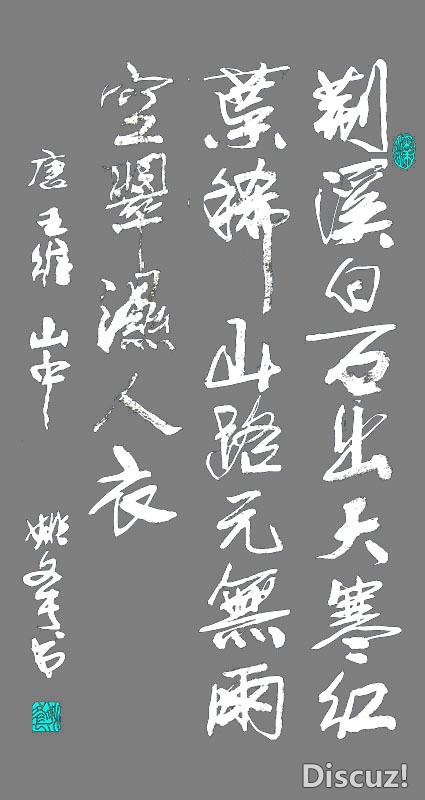 荆溪白石出天寒红
葉稀山路元無雨
空翠濕人衣
唐王維山中
姚孝書
Discuz!